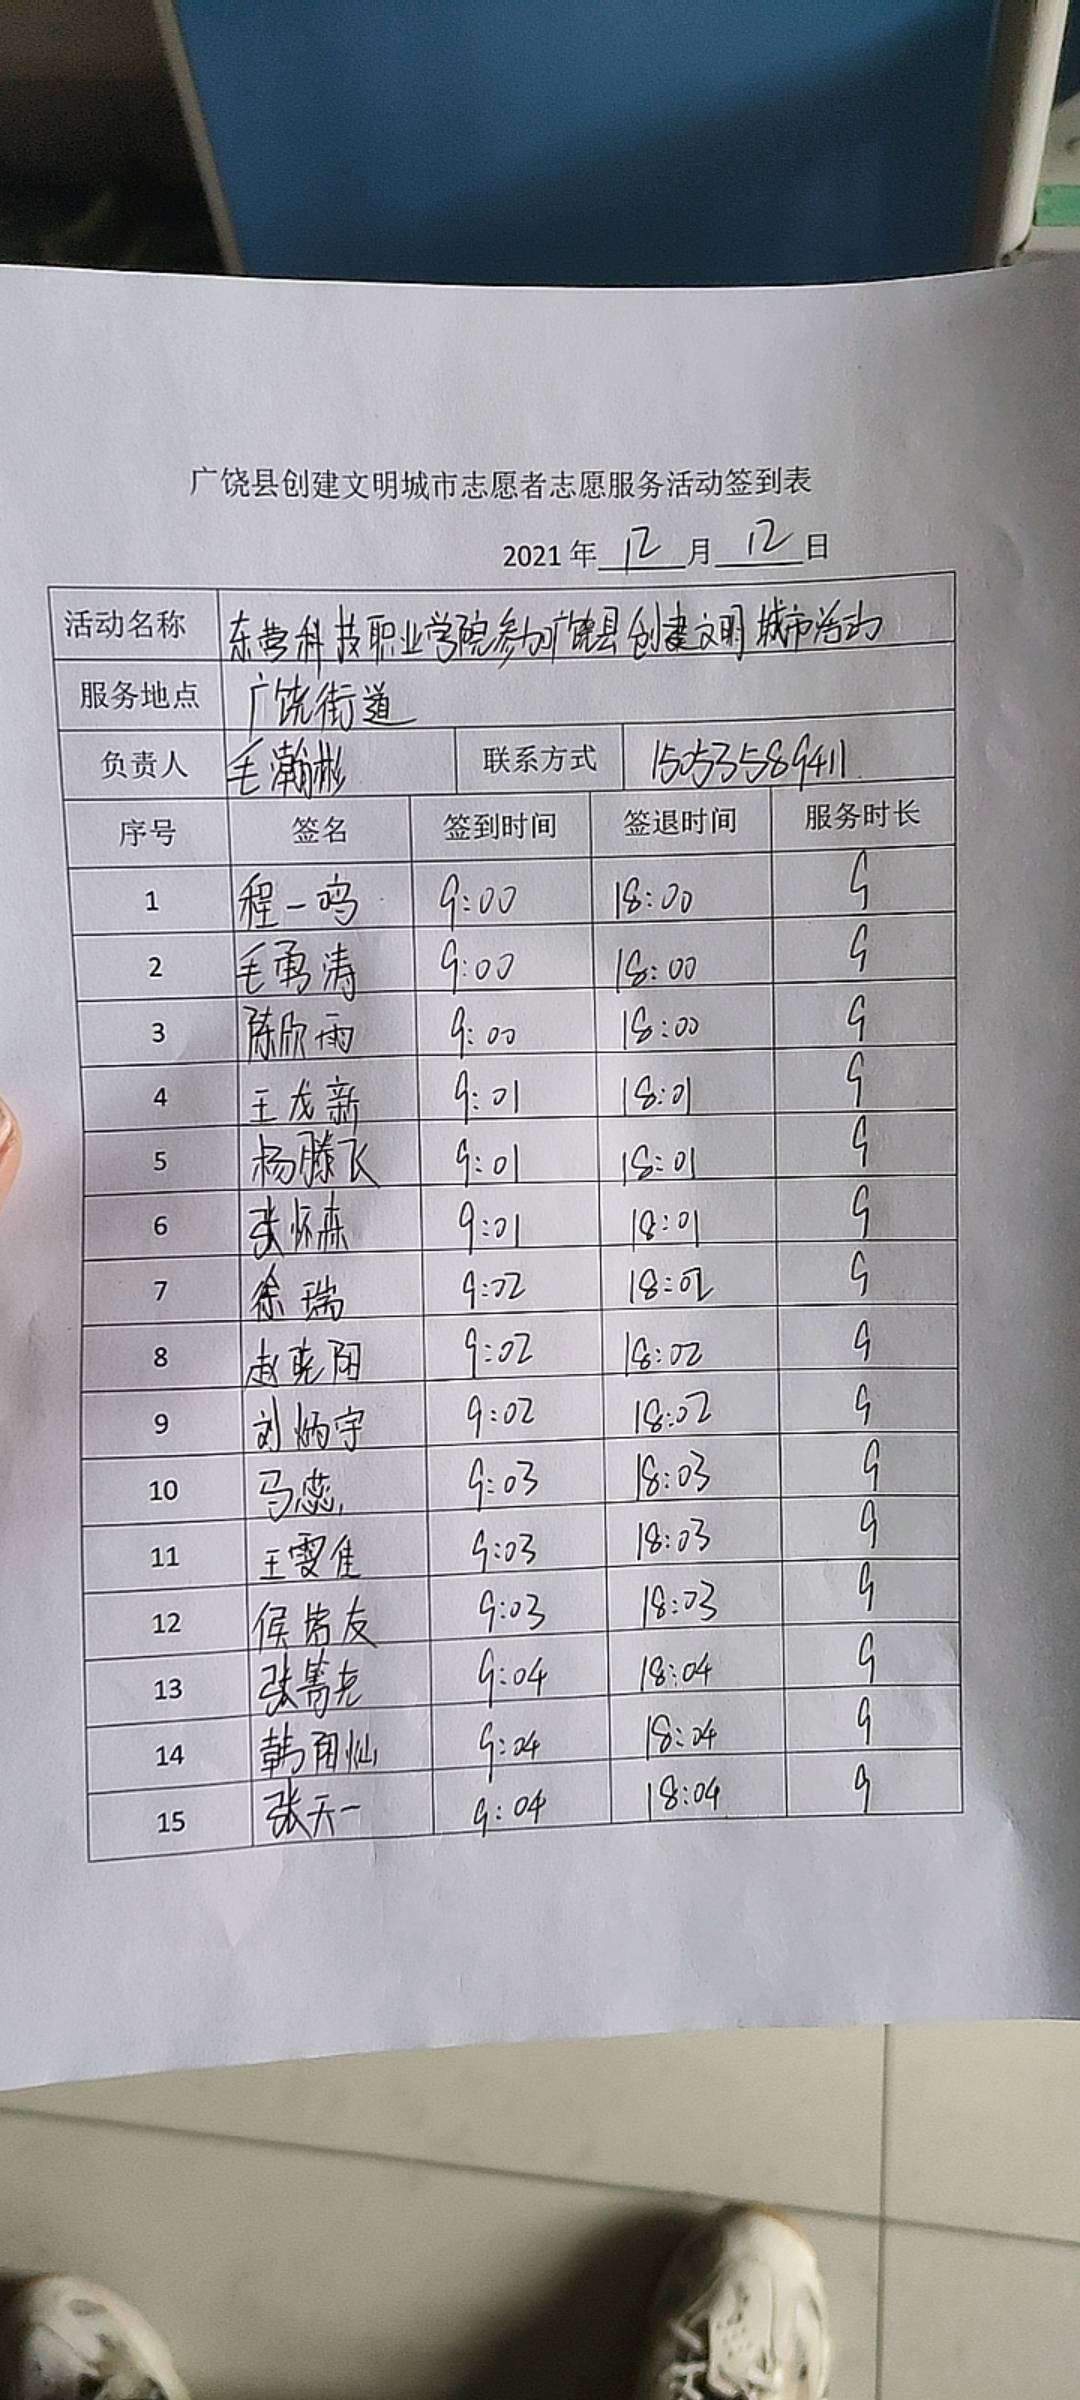 广饶县创建文明城市志愿者志愿服务活动签到表
2021 年 12 月 12 日
活动名称 东营科技职业学院参加广饶县创建文明城市活动
服务地点 广饶街道
负责人 毛瀚彬 联系方式 15053589411
序号 签名 签到时间 签退时间 服务时长
1 程一鸣 9:00 18:00 9
2 毛勇涛 9:00 18:00 9
3 陈欣雨 9:00 18:00 9
4 王龙新 9:01 18:01 9
5 杨滕飞 9:01 18:01 9
6 张怀森 9:01 18:01 9
7 徐瑞 9:02 18:02 9
8 赵晓阳 9:02 18:02 9
9 刘炳宇 9:02 18:02 9
10 马蕊 9:03 18:03 9
11 王雯佳 9:03 18:03 9
12 侯 友 9:03 18:03 9
13 张 9:04 18:04 9
14 韩阳灿 9:04 18:04 9
15 张天一 9:04 18:04 9